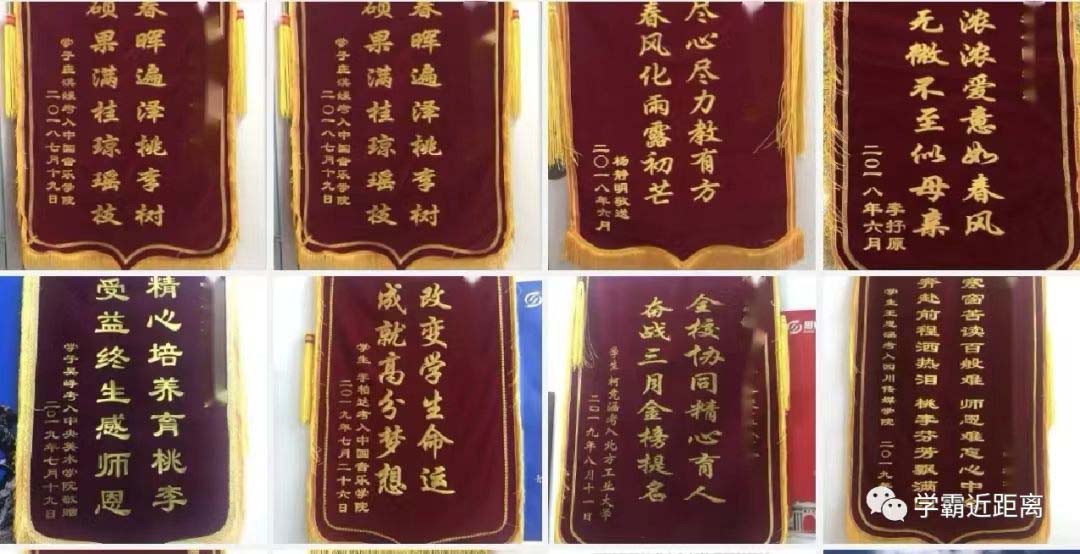 春晖遍泽桃李树
硕果满桂琼瑶枝
学子庄淇媛考入中国音乐学院
二〇一八七月十九日
春晖遍泽桃李树
硕果满桂琼瑶枝
学子庄淇媛考入中国音乐学院
二〇一八七月十九日
尽心尽力教有方
春风化雨露初芒
杨静明敬送
二〇一八年六月
浓浓爱意如春风
无微不至似母亲
李抒原
二〇一八年六月
精心培养育桃李
受益终生感师恩
学子吴峥考入中央美术学院敬赠
二〇一九年七月十九日
改变学生命运
成就高分梦想
学生 李柏达考入中国音乐学院
二〇一九年七月二十六日
全校协同精心育人
奋战三月金榜提名
学生 柯尧涵考入北方工业大学
二〇一九年八月十一日
寒窗苦读百般难 师恩难忘心中
奔赴前程洒热泪 桃李芬芳飘满
学生王思涵考入四川传媒学院 二〇一九
学霸近距离